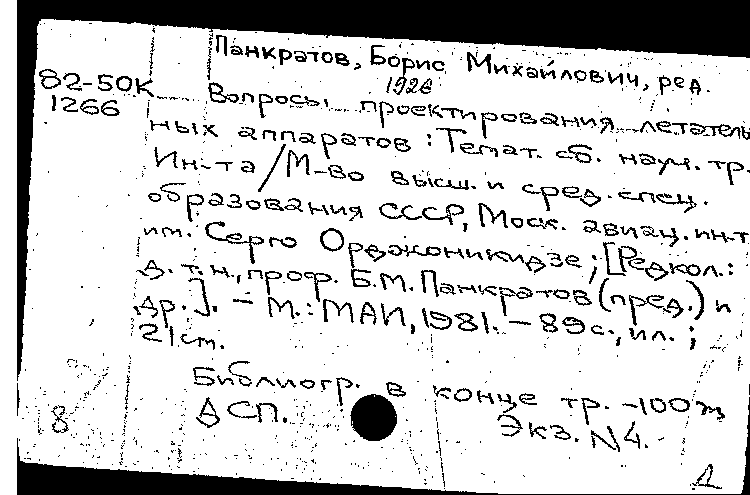 Панкратов, Борис Михайлович, ред.
1926
82-50К
1266
Вопросы проектирования летатель
ных аппаратов : Темат. сб. науч. тр.
Ин-та / М-во высш. и сред. спец.
образования СССР, Моск. авиац. ин-т
им. Серго Орджоникидзе ; [Редкол.:
д. т. н., проф. Б.М. Панкратов (пред.) и
др.]. - М. : МАИ, 1981. - 89 с., ил. ;
21 см.
Библиогр. в конце тр. - 100
ДСП.
Экз. N4.
18
Д